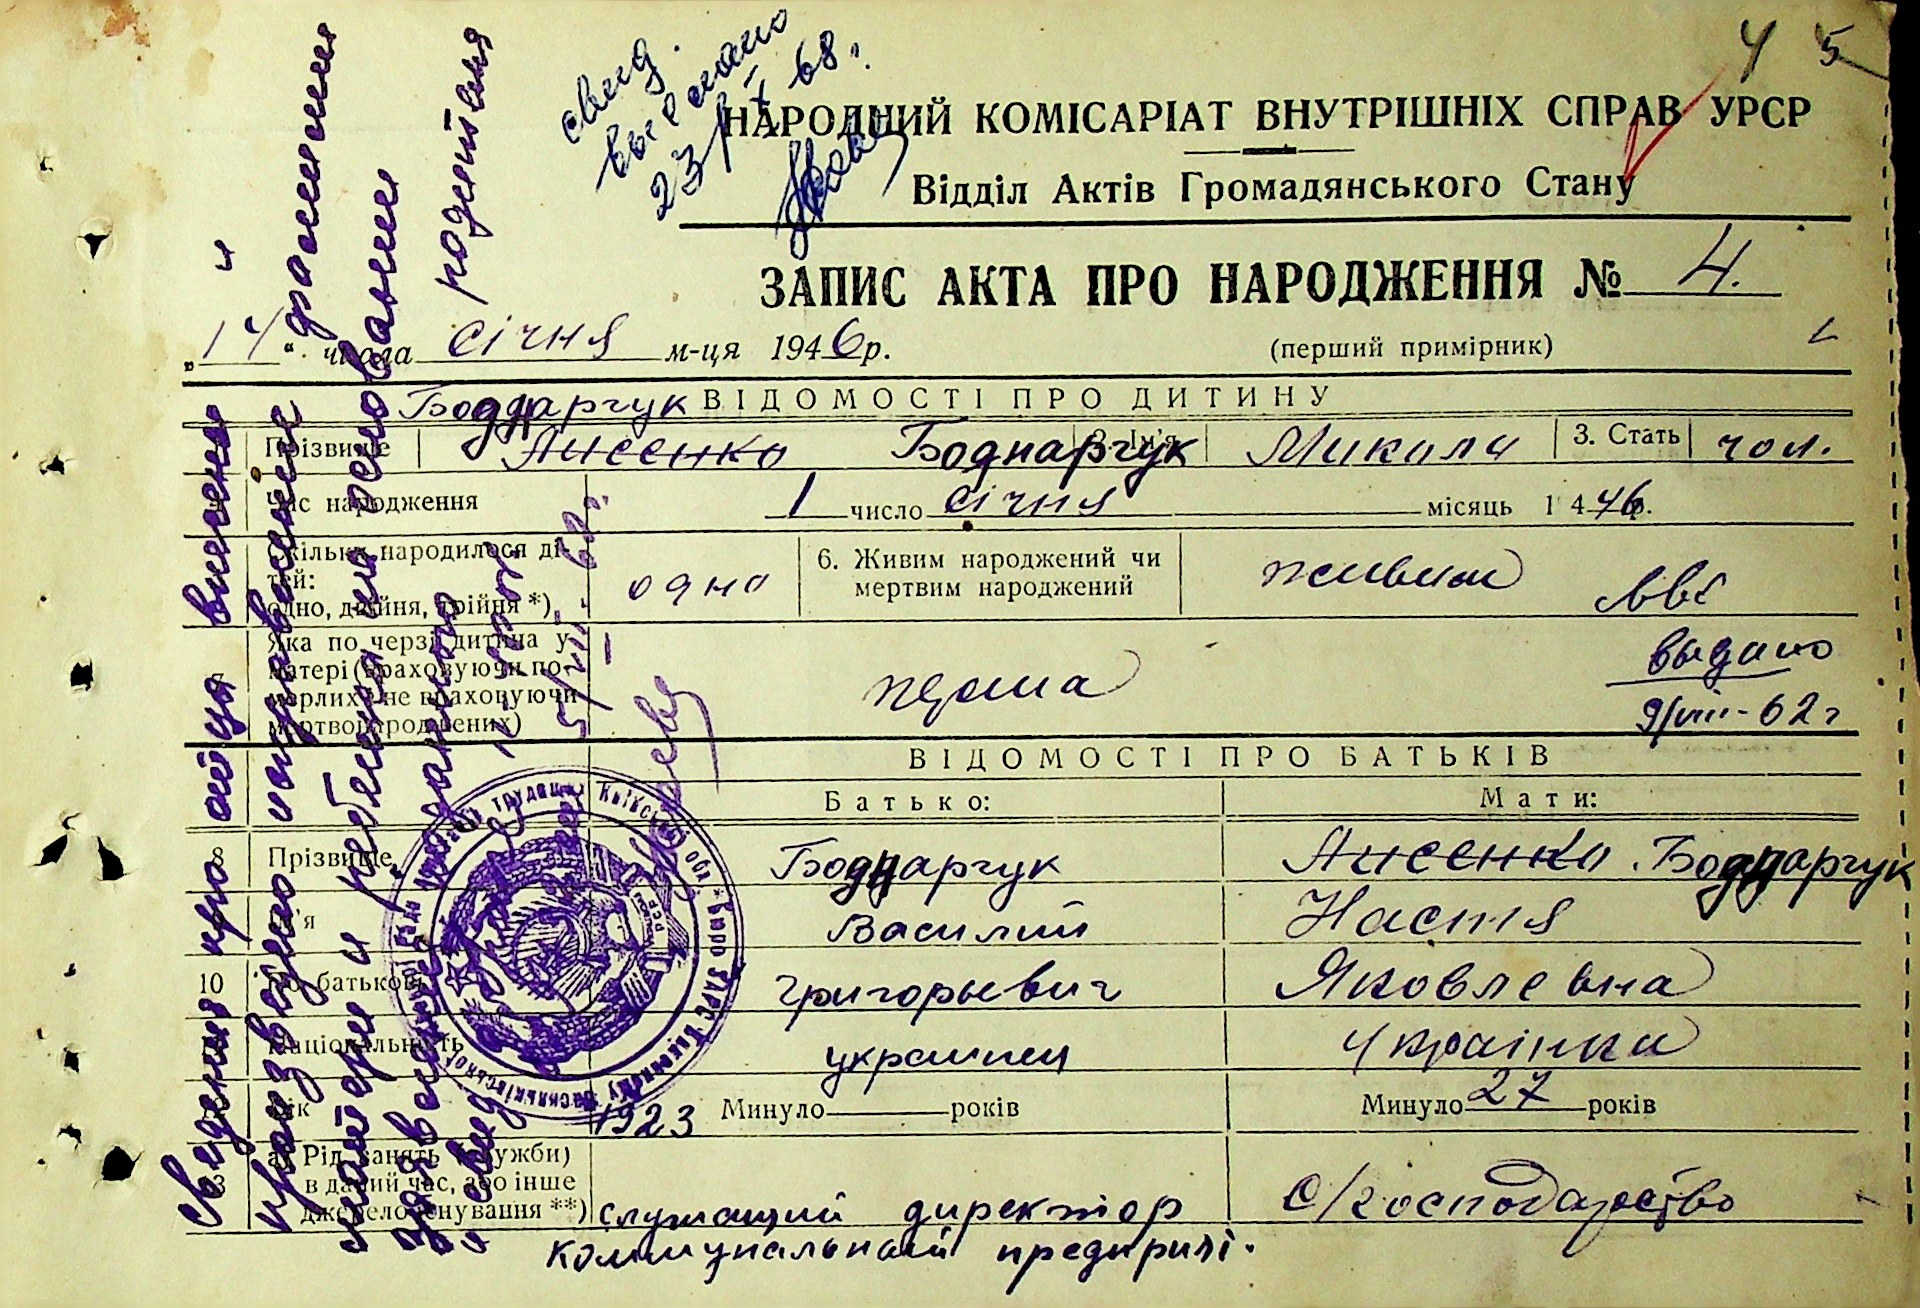 4 5
свид.
выслано
23/X-68г.
НАРОДНИЙ КОМІСАРІАТ ВНУТРІШНІХ СПРАВ УРСР
Відділ Актів Громадянського Стану
ЗАПИС АКТА ПРО НАРОДЖЕННЯ № 4.
„14“ числа січня м-ця 1946р.
(перший примірник)
ВІДОМОСТІ ПРО ДИТИНУ
Боднарчук
Прізвище Лисенко Боднарчук 2. Ім'я Микола 3. Стать чол.
Час народження 1 число січня місяць 1946р.
Скільки народилося дітей: одно, двійня, трійня *) одна
6. Живим народжений чи мертвим народжений живим
Яка по черзі дитина у матері (враховуючи померлих і не враховуючи мертвонароджених) перша
выдано
9/VIII-62г
ВІДОМОСТІ ПРО БАТЬКІВ
Батько: Мати:
8 Прізвище Боднарчук Лисенко. Боднарчук
Ім'я Василий Настя
10 По батькові Григорьевич Яковлевна
Національність украинец Українка
Вік 1923 Минуло років Минуло 27 років
а) Рід занять (служби) в даний час, або інше джерело існування **) служащий директор С/господарство
коммунальный предприяі.
Сведения про отца внесены и
произведено исправление фамилии
матери и ребенка на основании
заявления родителей